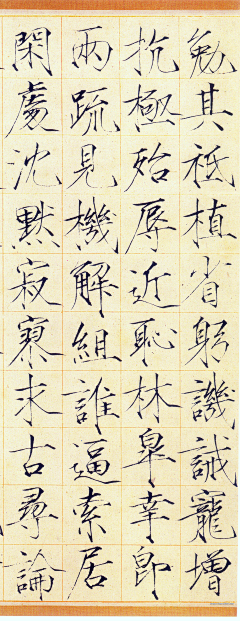 勉其祗植省躬譏誡寵增
抗極殆辱近恥林皋幸即
兩疏見機解組誰逼索居
閑處沈默寂寥求古尋論